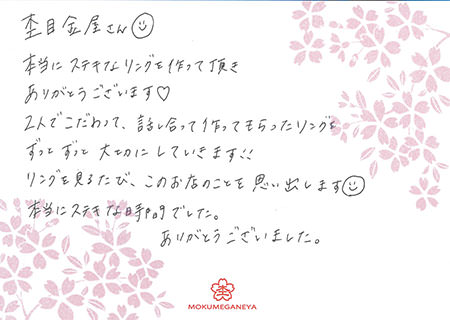 杢目金屋さん☺
本当にステキなリングを作って頂き
ありがとうございます♡
2人でこだわって、話し合って作ってもらったリングを
ずっとずっと大切にしていきます!!
リングを見るたび、このお店のことを思い出します☺
本当にステキな時間でした。
ありがとうございました。
杢
MOKUMEGANEYA